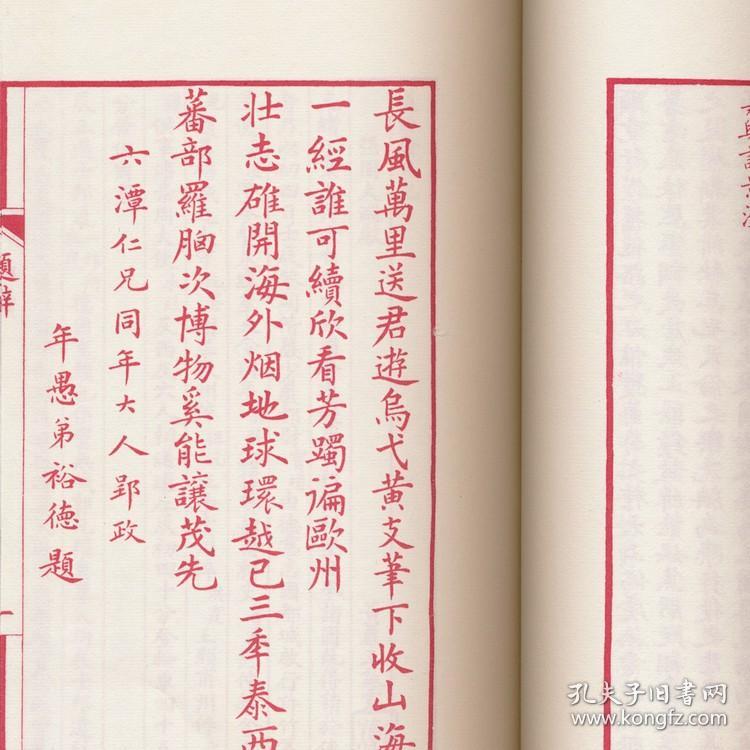 長風萬里送君遊烏弋黃支筆下收山海
一經誰可續欣看芳躅徧歐州
壯志碓開海外烟地球環越已三秊泰西
蕃部羅胸次博物奚能讓茂先
六潭仁兄同年大人郢政
年愚弟裕德題
題辭
一
孔夫子旧书网
www.kongfz.com